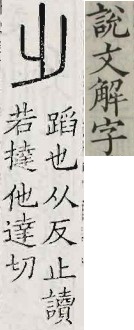 說文解字
𣥂
蹈也从反止讀
若撻他達切